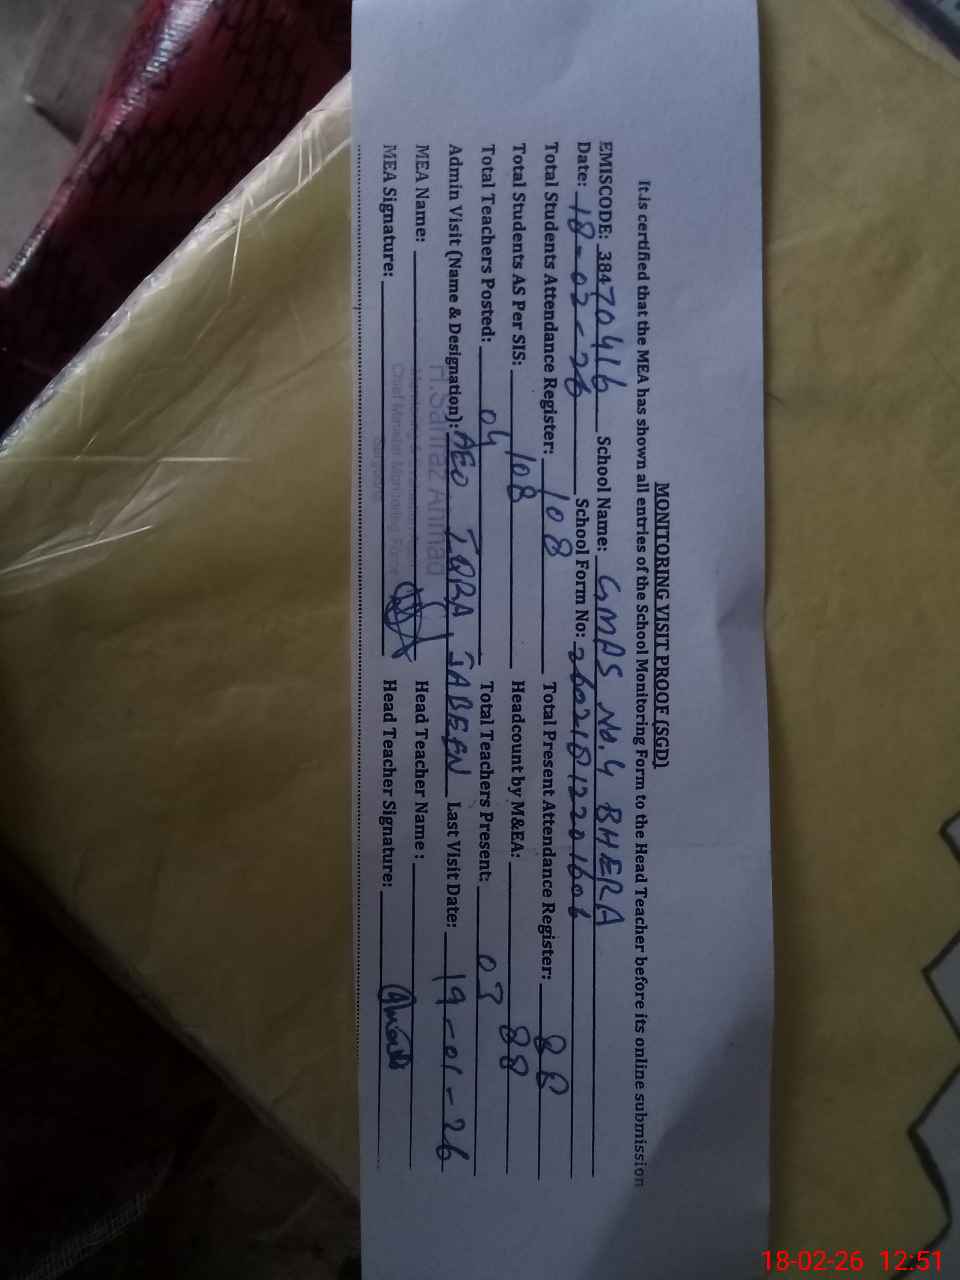 MONITORING VISIT PROOF (SGD)
It.is certified that the MEA has shown all entries of the School Monitoring Form to the Head Teacher before its online submission
EMISCODE: 38470416 School Name: GMPS No.4 BHERA
Date: 18-02-26 School Form No: 26021812201606
Total Students Attendance Register: 108 Total Present Attendance Register: 88
Total Students AS Per SIS: 108 Headcount by M&EA: 88
Total Teachers Posted: 04 Total Teachers Present: 03
Admin Visit (Name & Designation): AEO IQRA JABEEN Last Visit Date: 19-01-26
MEA Name: Head Teacher Name:
MEA Signature: Head Teacher Signature:
H.Sarfraz Ahmad
Chief Minister Monitoring Force
Sargodha
18-02-26 12:51